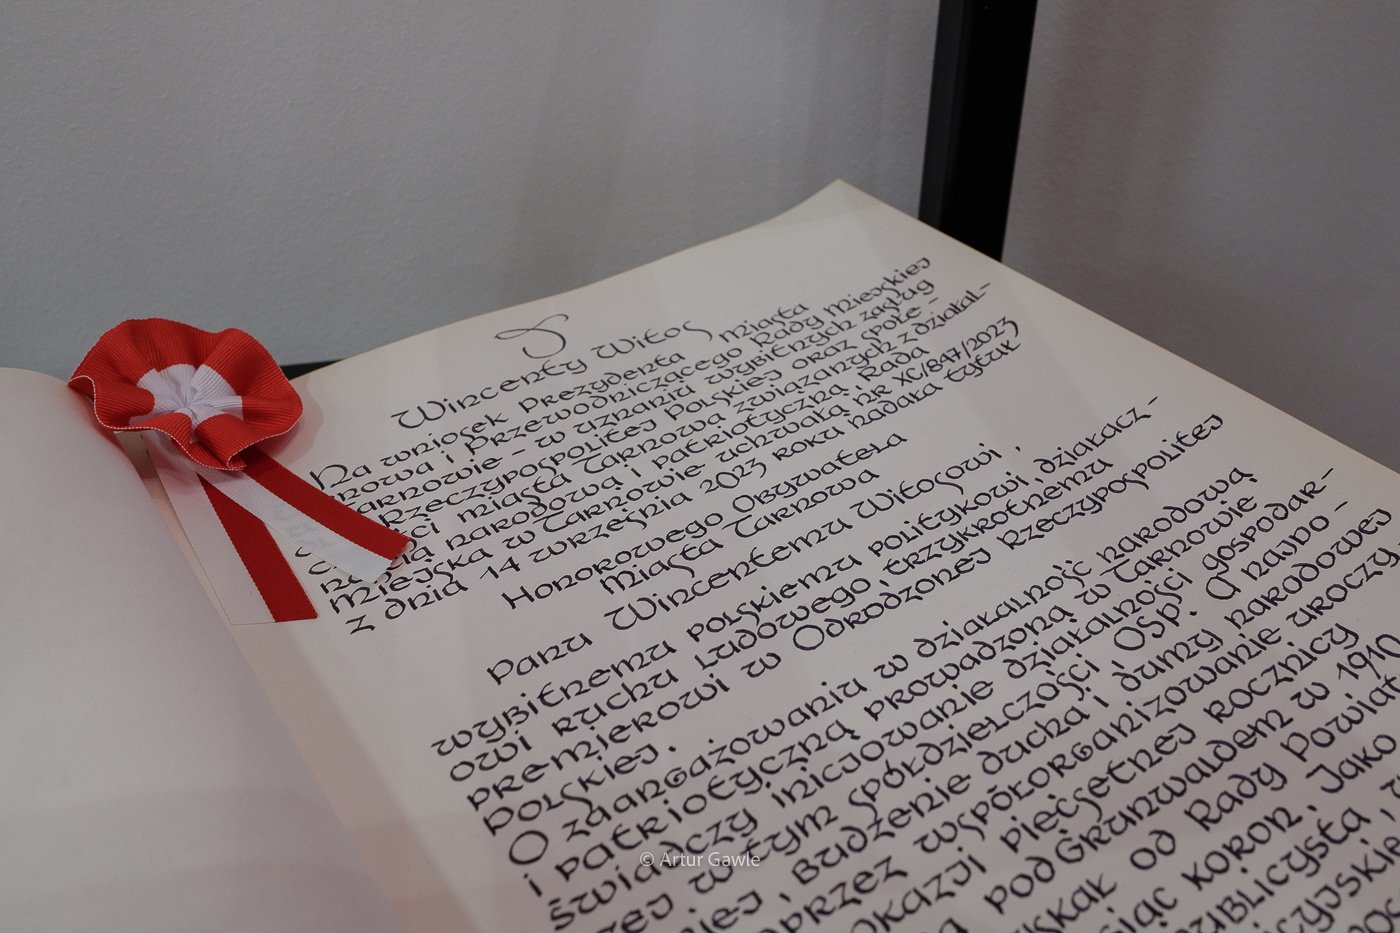 Wincenty Witos
Na wniosek Prezydenta Miasta
Tarnowa i Przewodniczącego Rady Miejskiej
w Tarnowie – w uznaniu wybitnych zasług
Rzeczypospolitej Polskiej oraz społe-
miasta Tarnowa związanych z działal-
narodową i patriotyczną, Rada
Miejska w Tarnowie uchwałą nr XC/847/2023
z dnia 14 września 2023 roku nadała tytuł
Honorowego Obywatela
Miasta Tarnowa
Panu Wincentemu Witosowi,
wybitnemu polskiemu politykowi, działacz-
owi ruchu ludowego, trzykrotnemu
premierowi w Odrodzonej Rzeczypospolitej
Polskiej.
O zaangażowaniu w działalność narodową
i patriotyczną prowadzoną w Tarnowie
świadczy inicjowanie działalności gospodar-
czej w tym spółdzielczości, OSP. A najdo-
, budzenie ducha i dumy narodowej
poprzez współorganizowanie uroczy
okazji pięćsetnej rocznicy
pod Grunwaldem w 1910
od Rady Powiat
koron. Jako
© Artur Gawle